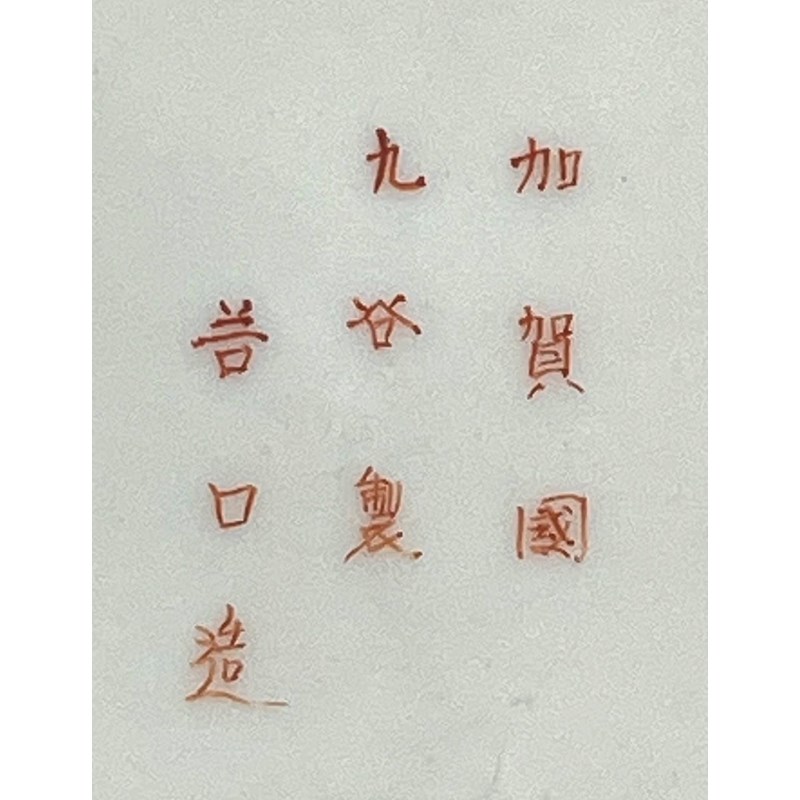 加賀國
九谷製
口造